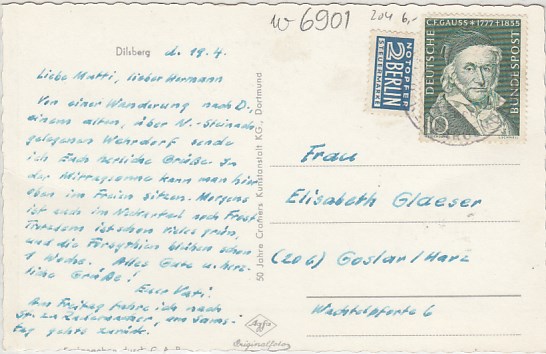 w 6901
204 6,-
Dilsberg d. 19.4.
Liebe Mutti, lieber Hermann
Von einer Wanderung nach D.,
einem alten, über N.-Steinach
gelegenen Wehrdorf sende
ich Euch herzliche Grüße. In
der Mittagssonne kann man hier
oben im Freien sitzen. Morgens
ist auch im Neckartal noch Frost
Trotzdem ist schon vieles grün,
und die Forsythien blühen schon
1 Woche. Alles Gute u. herz-
liche Grüße!
Euer Vati.
Am Freitag fahre ich nach
am Sams-
tag gehts zurück.
50 Jahre Cramers Kunstanstalt KG., Dortmund
Agfa
Originalfoto
NOTOPFER
2 BERLIN
STEUERMARKE
DEUTSCHE BUNDESPOST
C.F. GAUSS * 1777 † 1855
10
Frau
Elisabeth Glaeser
(20b) Goslar/Harz
Wachtelpforte 6